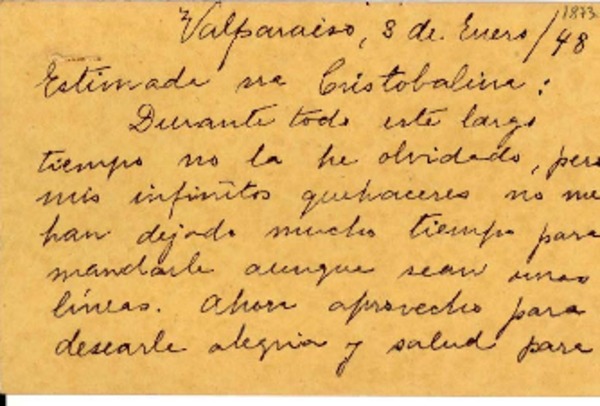 1873
Valparaiso, 3 de Enero/48
Estimada sra Cristobalina:
Durante todo este largo
tiempo no la he olvidado, pero
mis infinitos quehaceres no me
han dejado mucho tiempo para
mandarle aunque sean unas
líneas. Ahora aprovecho para
desearle alegria y salud para